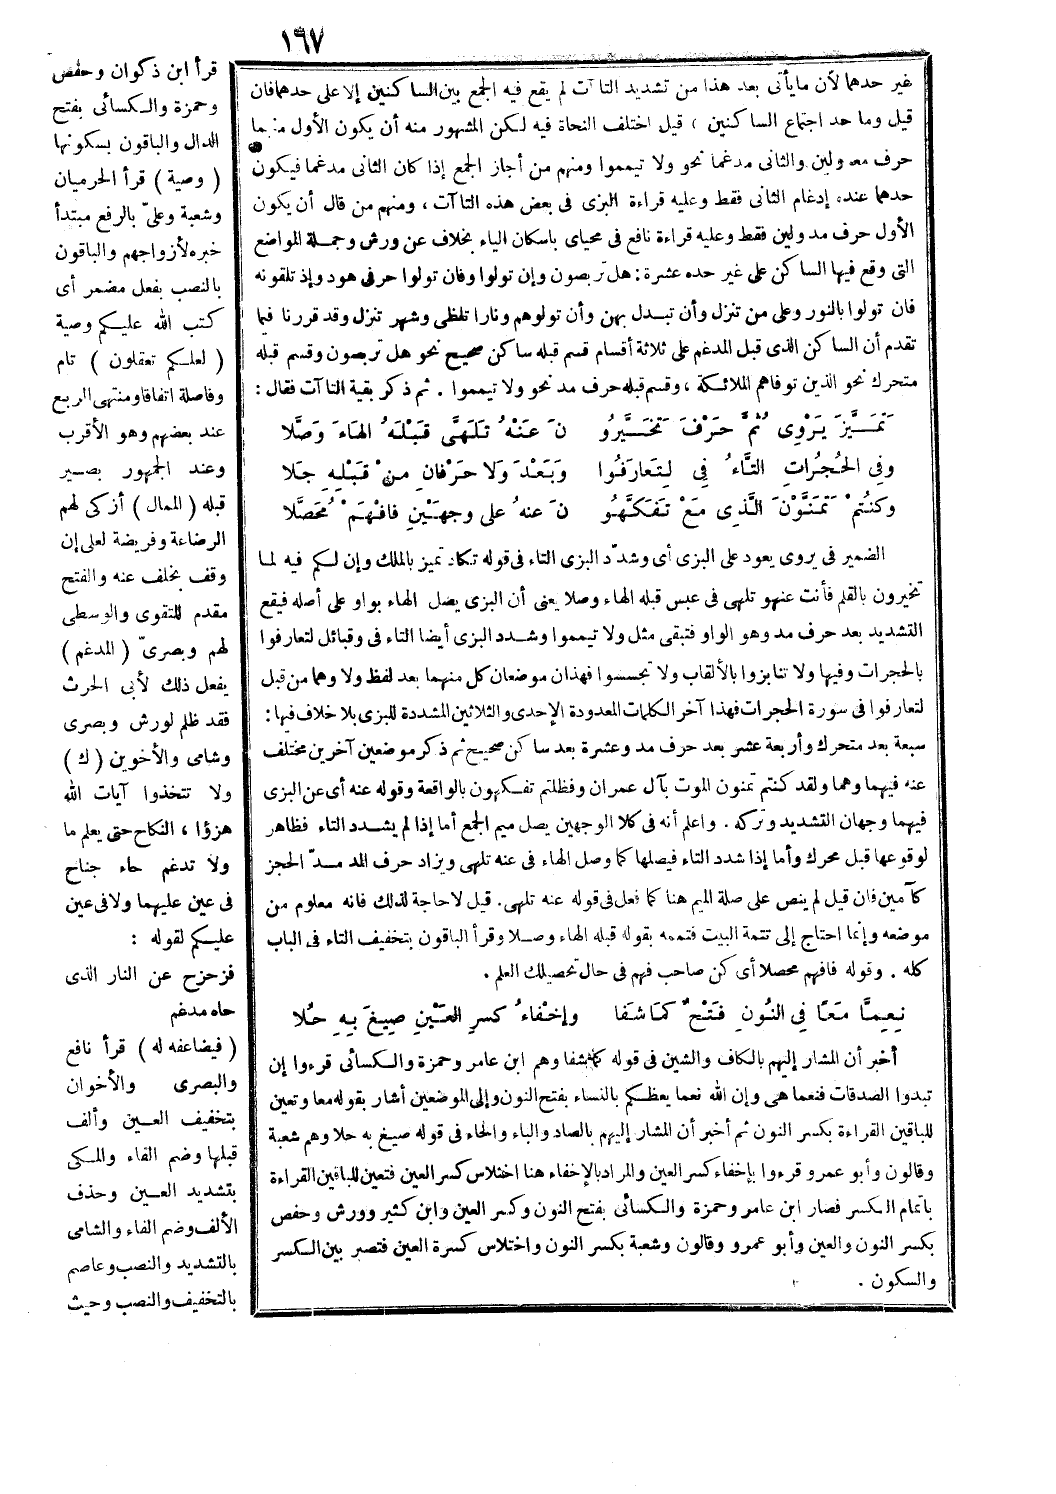 ١٦٧
غير حدهما لأن مايأتى بعد هذا من تشديد التاآت لم يقع فيه الجمع بين الساكنين إلا على حدهما فان
قيل وما حد اجتماع الساكنين ، قيل اختلف النحاة فيه لكن المشهور منه أن يكون الأول منهما
حرف مد ولين والثانى مدغما نحو ولا تيمموا ومنهم من أجاز الجمع إذا كان الثانى مدغما فيكون
حدهما عنده إدغام الثانى فقط وعليه قراءة البزى فى بعض هذه التاآت ، ومنهم من قال أن يكون
الأول حرف مد ولين فقط وعليه قراءة نافع فى محياى باسكان الياء بخلاف عن ورش وجملة المواضع
التى وقع فيها الساكن على غير حده عشرة : هل تربصون وإن تولوا وفان تولوا حرفى هود وإذ تلقونه
فان تولوا بالنور وعلى من تنزل وأن تبدل بهن وأن تولوهم ونارا تلظى وشهر تنزل وقد قررنا فيما
تقدم أن الساكن الذى قبل المدغم على ثلاثة أقسام قسم قبله ساكن صحيح نحو هل تربصون وقسم قبله
متحرك نحو الذين توفاهم الملائكة ، وقسم قبله حرف مد نحو ولا تيمموا . ثم ذكر بقية التاآت فقال :
تَمَيَّزَ يَرْوِى ثُمَّ حَرْفَ تَخَيَّرُو نَ عَنْهُ تَلَهَّى قَبْلَهُ الهَاءَ وَصَّلَا
وَفِى الْحُجُرَاتِ التَّاءُ فِى لِتَعَارَفُوا وَبَعْدَ وَلَا حَرْفَانِ مِنْ قَبْلِهِ جَلَا
وَكُنْتُمْ تَمَنَّوْنَ الَّذِى مَعْ تَفَكَّهُو نَ عنهُ على وجهَيْنِ فافْهَمْ مُحَصَّلَا
الضمير فى يروى يعود على البزى أى وشدّد البزى التاء فى قوله تكاد تميز بالملك وإن لكم فيه لما
تخيرون بالقلم فأنت عنهو تلهى فى عبس قبله الهاء وصلا يعنى أن البزى يصل الهاء بواو على أصله فيقع
التشديد بعد حرف مد وهو الواو فتبقى مثل ولا تيمموا وشدد البزى أيضا التاء فى وقبائل لتعارفوا
بالحجرات وفيها ولا تنابزوا بالألقاب ولا تجسسوا فهذان موضعان كل منهما بعد لفظ ولا وهما من قبل
لتعارفوا فى سورة الحجرات فهذا آخر الكلمات المعدودة الإحدى والثلاثين المشددة للبزى بلا خلاف فيها :
سبعة بعد متحرك وأربعة عشر بعد حرف مد وعشرة بعد ساكن صحيح ثم ذكر موضعين آخرين مختلف
عنه فيهما وهما ولقد كنتم تمنون الموت بآل عمران وفظلتم تفكهون بالواقعة وقوله عنه أى عن البزى
فيهما وجهان التشديد وتركه . واعلم أنه فى كلا الوجهين يصل ميم الجمع أما إذا لم يشدد التاء فظاهر
لوقوعها قبل محرك وأما إذا شدد التاء فيصلها كما وصل الهاء فى عنه تلهى ويزاد حرف المد مدّ الحجز
كآمين فان قيل لم ينص على صلة الميم هنا كما فعل فى قوله عنه تلهى. قيل لا حاجة لذلك فانه معلوم من
موضعه وإنما احتاج إلى تتمة البيت فتممه بقوله قبله الهاء وصلا وقرأ الباقون بتخفيف التاء فى الباب
كله . وقوله فافهم محصلا أى كن صاحب فهم فى حال تحصيلك العلم .
نِعِمَّا مَعًا فِى النُّونِ فَتْحٌ كَمَا شَفَا وإخْفَاءُ كسرِ العَيْنِ صِيغَ بِهِ حُلَا
أخبر أن المشار إليهم بالكاف والشين فى قوله كما شفا وهم ابن عامر وحمزة والكسائى قرءوا إن
تبدوا الصدقات فنعما هى وإن الله نعما يعظكم بالنساء بفتح النون وإلى الموضعين أشار بقوله معا وتعين
للباقين القراءة بكسر النون ثم أخبر أن المشار إليهم بالصاد والباء والحاء فى قوله صيغ به حلا وهم شعبة
وقالون وأبو عمرو قرءوا بإخفاء كسر العين والمراد بالإخفاء هنا اختلاس كسر العين فتعين للباقين القراءة
باتمام الكسر فصار ابن عامر وحمزة والكسائى بفتح النون وكسر العين وابن كثير وورش وحفص
بكسر النون والعين وأبو عمرو وقالون وشعبة بكسر النون واختلاس كسرة العين فتصير بين الكسر
والسكون .
قرأ ابن ذكوان وحفص
وحمزة والكسائى بفتح
الدال والباقون بسكونها
( وصية ) قرأ الحرميان
وشعبة وعلىّ بالرفع مبتدأ
خبره لأزواجهم والباقون
بالنصب بفعل مضمر أى
كتب الله عليكم وصية
( لعلكم تعقلون ) تام
وفاصلة اتفاقا ومنتهى الربع
عند بعضهم وهو الأقرب
وعند الجمهور بصير
قبله ( الممال ) أزكى لهم
الرضاعة وفريضة لعلى إن
وقف بخلف عنه والفتح
مقدم للتقوى والوسطى
لهم وبصرىّ ( المدغم )
يفعل ذلك لأبى الحرث
فقد ظلم لورش وبصرى
وشامى والأخوين ( ك )
ولا تتخذوا آيات الله
هزؤا ، النكاح حتى يعلم ما
ولا تدغم حاء جناح
فى عين عليهما ولا فى عين
عليكم لقوله :
فزحزح عن النار الذى
حاه مدغم
( فيضاعفه له ) قرأ نافع
والبصرى والأخوان
بتخفيف العين وألف
قبلها وضم الفاء والمكى
بتشديد العين وحذف
الألف وضم الفاء والشامى
بالتشديد والنصب وعاصم
بالتخفيف والنصب وحيث